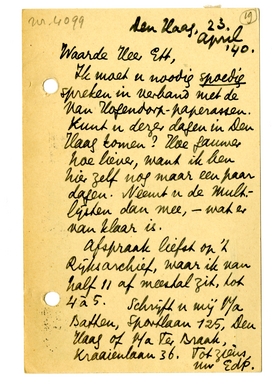 nr. 4099
19
Den Haag, 23.
April '40.
Waarde Heer Ett,
Ik moet u noodig spoedig
spreken in verband met de
van Hogendorp-paperassen.
Kunt u dezer dagen in Den
Haag komen? Hoe gauwer
hoe liever, want ik ben
hier zelf nog maar een paar
dagen. Neemt u de Mult-
lijsten dan mee, – wat er
van klaar is.
Afspraak liefst op 't
Rijksarchief, waar ik van
half 11 af meestal zit, tot
4 à 5. Schrijft u mij p/a
Batten, Sportlaan 125, Den
Haag of p/a Ter Braak,
Kraaienlaan 36. Tot ziens,
uw EdP.